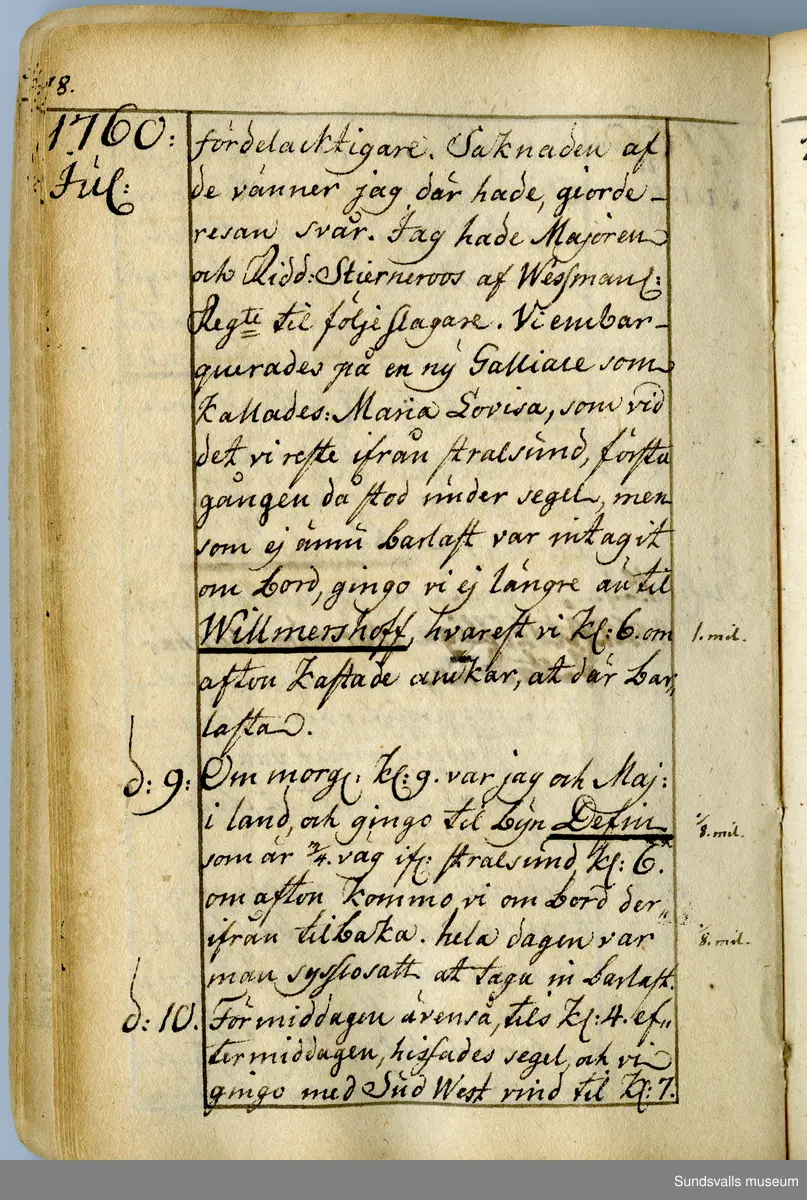 18.
1760:
Jul:
fördelacktigare. Saknaden af
de vänner jag där hade, giorde-
resan svår. Jag hade Majoren
och Ridd: Stierneroos af Wessmanl:
Regte til följeslagare. Vi embar-
querades på en ny Galliace som
kallades: Maria Lovisa, som vid
det vi reste ifrån stralsund, första
gången då stod under segel, men
som ej ännu barlast var intagit
om bord, gingo vi ej längre än til
Willmershoff, hvarest vi kl: 6. om 1. mil.
afton kastade anckar, at där bar„
lasta.
d: 9: Om morg: kl: 9. var jag och Maj:
i land, och gingo til byn Defin 1/8. mil.
som är 3/4. väg if: stralsund, kl: 6.
om afton kommo vi om bord der„
ifrån tilbaka. hela dagen var 1/8. mil.
man sysslosatt at taga in barlast.
d: 10. Förmiddagen ävenså, tils kl: 4. ef„
termiddagen, hissades segel, och vi
gingo med Süd West vind til kl: 7.
Sundsvalls museum